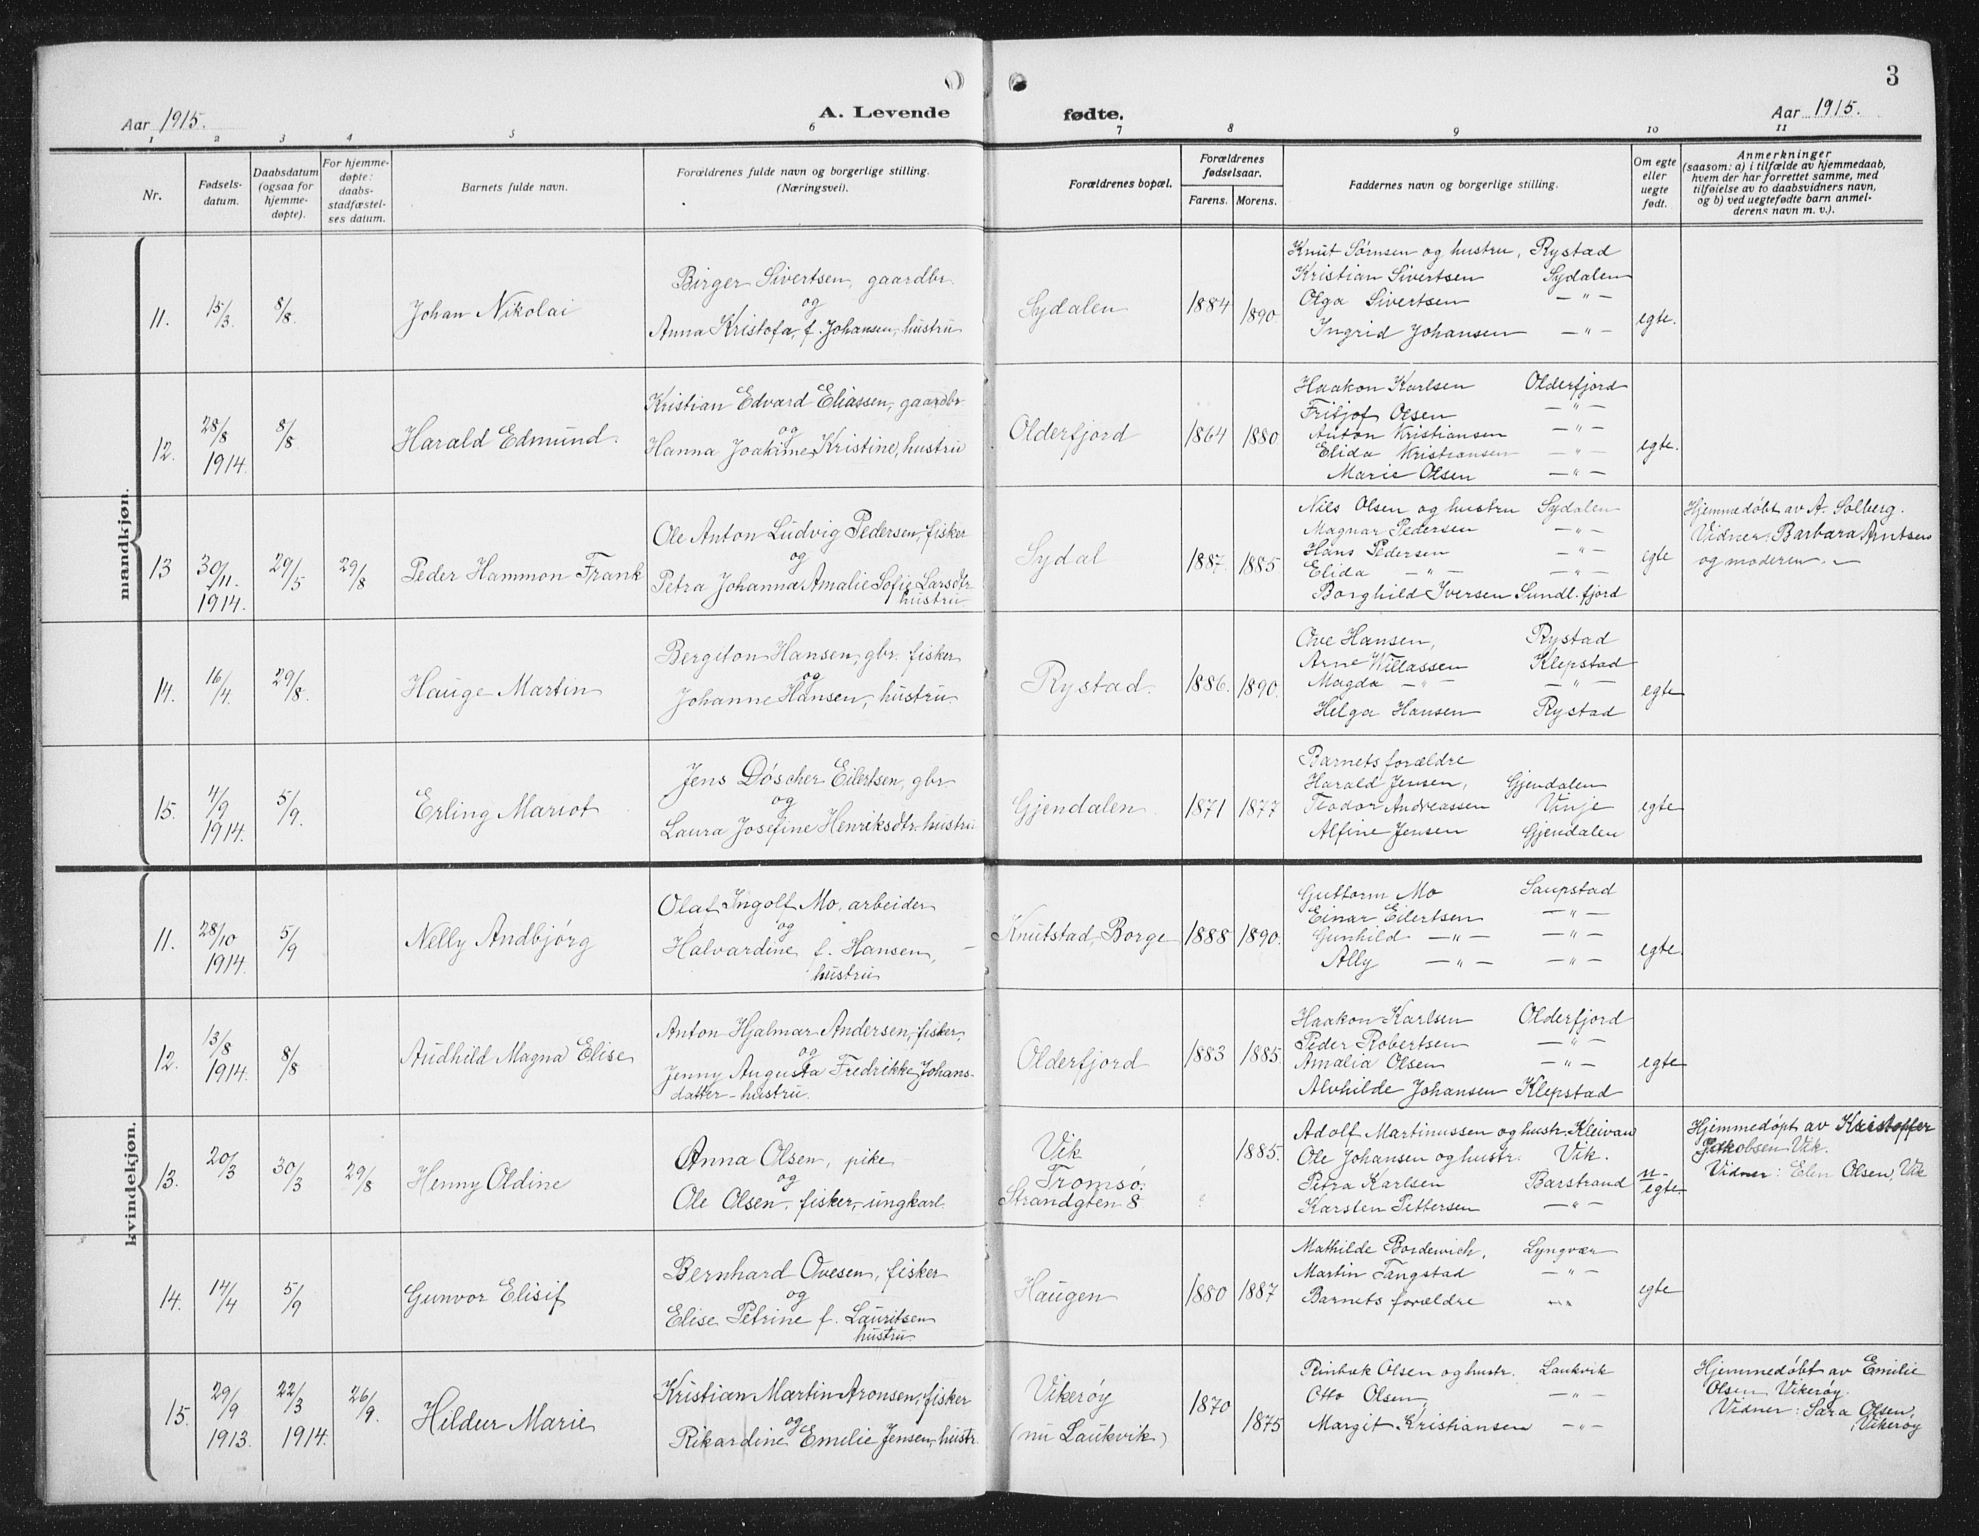 3
Aar 1915.
A. Levende
fødte.
Aar 1915.
1 2 3 4 5 6 7 8 9 10 11
Nr.
Fødsels-
datum.
Daabsdatum
(ogsaa for
hjemme-
døpte).
For hjemme-
døpte:
daabs-
stadfæstel-
ses datum.
Barnets fulde navn.
Forældrenes fulde navn og borgerlige stilling.
(Næringsvei).
Forældrenes bopæl.
Forældrenes
fødselsaar.
Farens. Morens.
Faddernes navn og borgerlige stilling.
Om egte
eller
uegte
født.
Anmerkninger
(saasom: a) i tilfælde av hjemmedaab,
hvem der har forrettet samme, med
tilføielse av to daabsvidners navn,
og b) ved uegtefødte barn anmel-
derens navn m. v.).
mandkjøn.
11.
15/3.
8/8.
Johan Nikolai
Birger Sivertsen, gaardbr.
og
Anna Kristofa, f. Johansen, hustru
Sydalen
1884
1890
Knut Sørnsen og hustru, Rystad
Kristian Sivertsen Sydalen
Olga Sivertsen — " —
Ingrid Johansen — " —
egte.
12.
28/8
1914.
8/8.
Harald Edmund.
Kristian Edvard Eliassen, gaardbr.
og
Hanna Joakime Kristine, hustru
Olderfjord
1864
1880
Haakon Karlsen Olderfjord
Fritjof Olsen — " —
Anton Kristiansen — " —
Elida Kristiansen — " —
Marie Olsen — " —
egte.
13
30/11.
1914.
29/5
29/8
Peder Hammon Frank
Ole Anton Ludvig Pedersen, fisker
og
Petra Johanna Amalie Sofie Larsdtr
hustru
Sydal
1887.
1885
Nils Olsen og hustru Sydalen
Magnar Pedersen — " —
Hans Pedersen — " —
Elida — " — — " —
Borghild Iversen Sundl.fjord
egte
Hjemmedøbt av A. Solberg.
Vidner: Barbara Arntsen
og moderen. —
14.
16/4.
29/8.
Hauge Martin
Bergiton Hansen, gbr. fisker
og
Johanne Hansen, hustru.
Rystad.
1886.
1890.
Ove Hansen, Rystad
Arne Willassen Klepstad
Magda — " — — " —
Helga Hansen Rystad
egte
15.
4/9
1914.
5/9.
Erling Mariot
Jens Døscher Eilertsen, gbr
og
Laura Josefine Henriksdtr. hustru
Gjendalen
1871
1877
Barnets forældre
Harald Jensen, Gjendalen
Teodor Andreassen Vinje
Alfine Jensen Gjendalen
egte
kvindekjøn.
11.
28/10
1914.
5/9
Nelly Andbjørg
Olaf Ingolf Mo, arbeider
og
Halvardine f. Hansen, —
hustru
Knutstad, Borge
1888
1890.
Guttorm Mo Saupstad
Einar Eilertsen — " —
Gunhild — " — — " —
Ally — " — — " —
egte.
12.
13/8
1914.
8/8
Audhild Magna Elise
Anton Hjalmar Andersen, fisker,
og
Jenny Augusta Fredrikke Johans-
datter – hustru.
Olderfjord
1883
1885
Haakon Karlsen Olderfjord
Peder Robertsen — " —
Amalia Olsen — " —
Alvhilde Johansen Klepstad
egte
13.
20/3
30/3
29/8
Henny Oldine
Anna Olsen, pike
og
Ole Olsen, fisker, ungkarl.
Vik
Tromsø:
Strandgten 8
?
1885.
Adolf Martinussen og hustr. Kleivan
Ole Johansen og hustr. Vik.
Petra Karlsen Barstrand
Karsten Pettersen — " —
u-
egte.
Hjemmedøpt av Kristoffer
Jakobsen Vik.
Vidner: Elen Olsen, Vik
14.
14/4
5/9
Gunvor Elisif
Bernhard Ovesen, fisker
og
Elise Petrine f. Lauritsen
hustru.
Haugen
1880
1887
Mathilde Bordewich, Lyngvær
Martin Tangstad — " —
Barnets forældre — " —
egte
15.
29/9
1913.
22/3
1914.
26/9.
Hildur Marie
Kristian Martin Aronsen, fisker
og
Rikardine Emelie Jensen, hustr.
Vikerøy
(nu Laukvik)
1870
1875
Rinbæk Olsen og hustr. Laukvik
Otto Olsen, — " —
Margit Kristiansen — " —
Hjemmedøbt av Emilie
Olsen Vikerøy.
Vidner: Sara Olsen,
Vikerøy